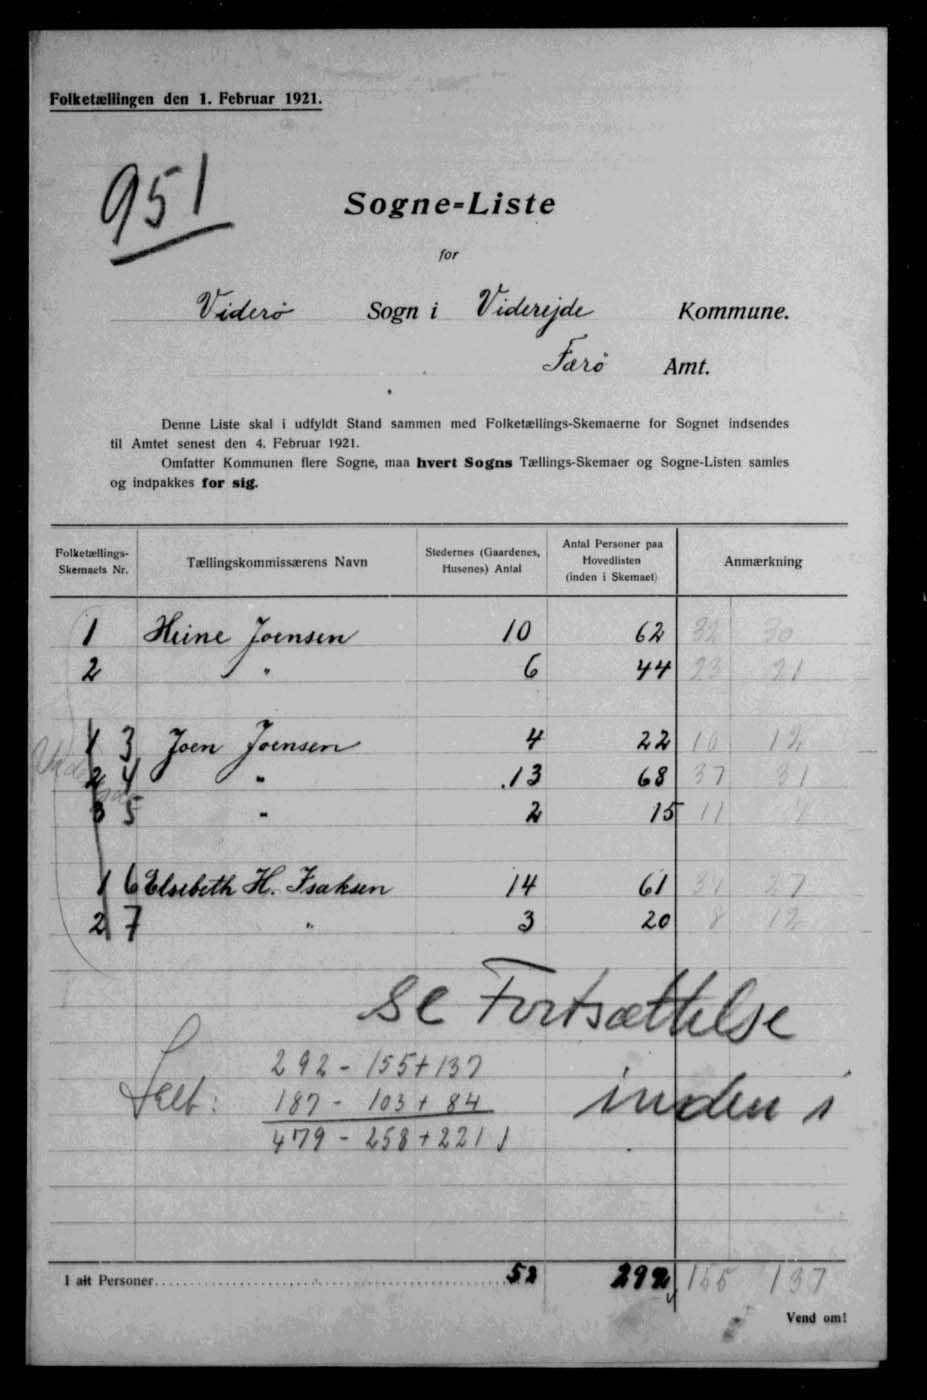 Folketællingen den 1. Februar 1921.
951
Sogne-Liste
for
Viderø Sogn i Viderejde Kommune.
Færø Amt.
Denne Liste skal i udfyldt Stand sammen med Folketællings-Skemaerne for Sognet indsendes
til Amtet senest den 4. Februar 1921.
Omfatter Kommunen flere Sogne, maa hvert Sogns Tællings-Skemaer og Sogne-Listen samles
og indpakkes for sig.
Folketællings-
Skemaets Nr.
Tællingskommissærens Navn
Stedernes (Gaardenes,
Husenes) Antal
Antal Personer paa
Hovedlisten
(inden i Skemaet)
Anmærkning
1 Heine Joensen 10 62 32 30
2 " 6 44 23 21
1 3 Joen Joensen 4 22 10 12
2 4 " 13 68 37 31
3 5 " 2 15 11 4
1 6 Elsebeth H. Isaksen 14 61 34 27
2 7 " 3 20 8 12
se Fortsættelse
inden i
292 - 155 + 137
Ialt: 187 - 103 + 84
479 - 258 + 221
I alt Personer 52 292 155 137
Vend om!